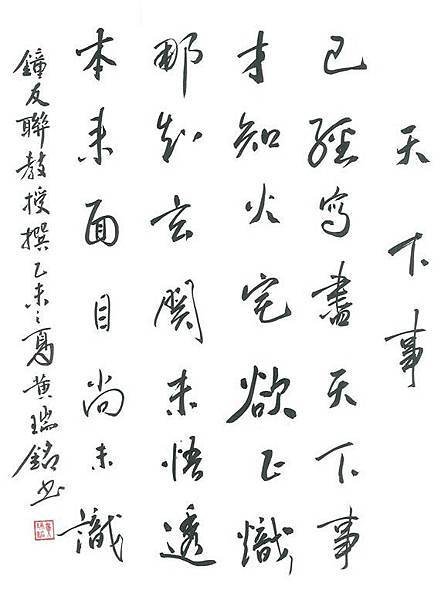 天下事
已經寫盡天下事
才知火宅欲正熾
那知玄關未悟透
本來面目尚未識
鐘友聯教授撰乙未之夏黃瑞銘書